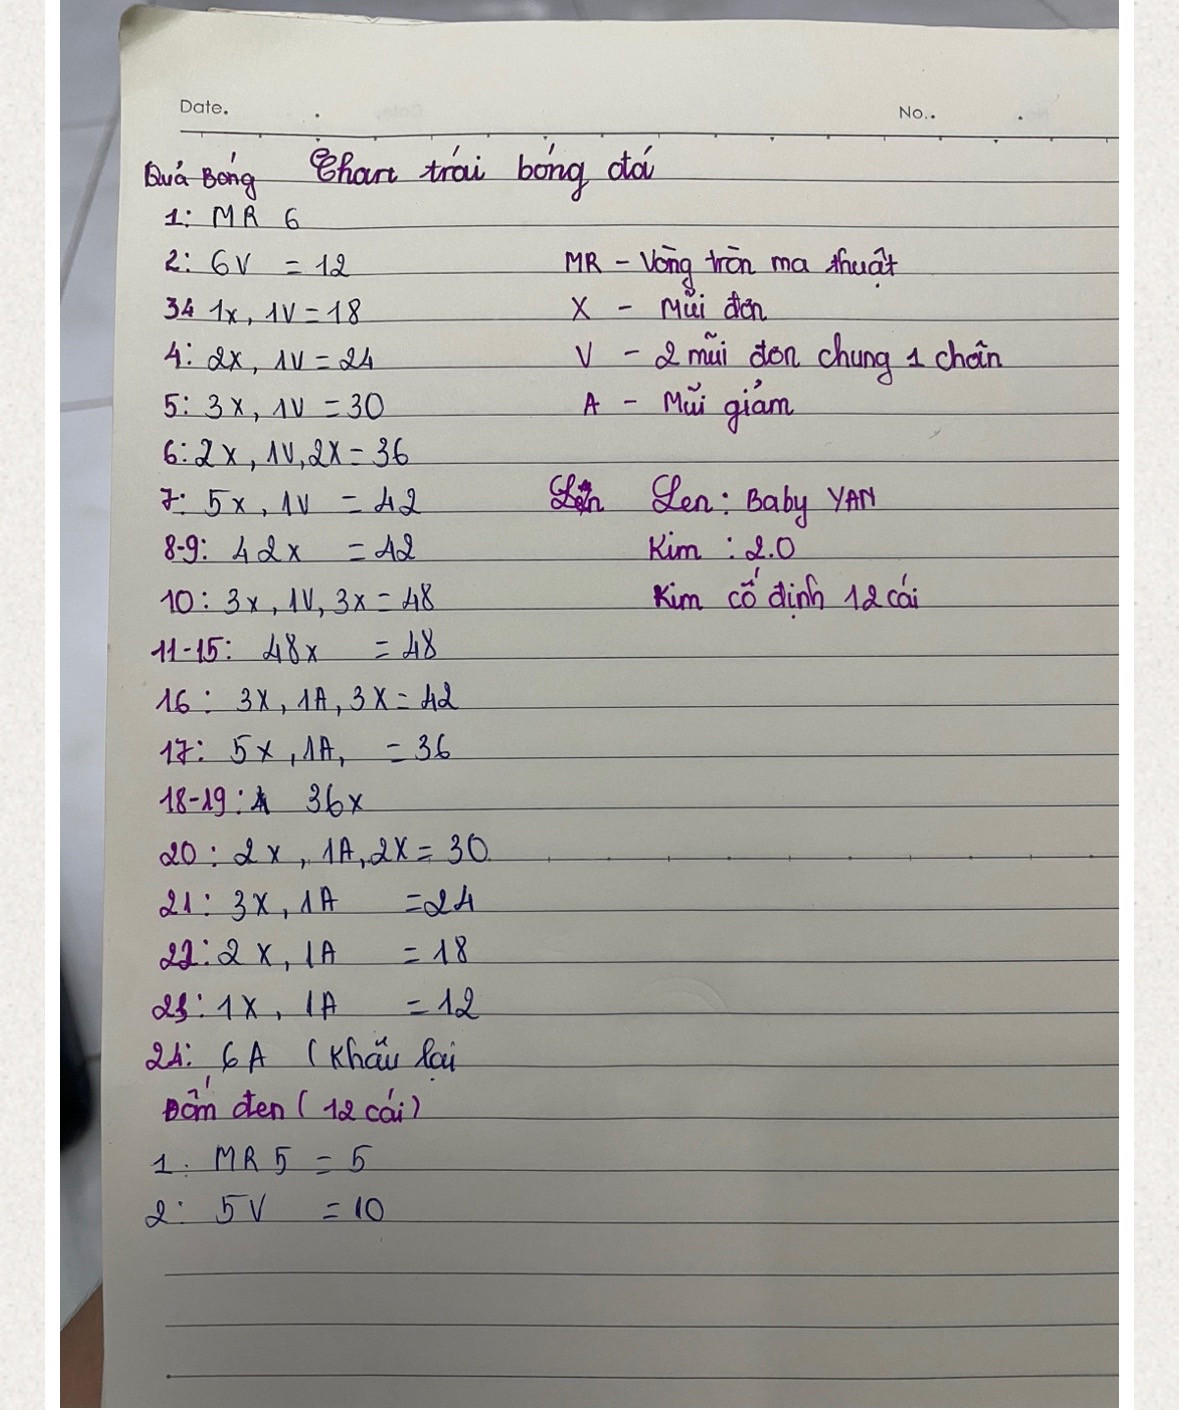 Date.
No..
Quả Bóng Chart trái bóng đá
1: MR 6
2: 6V = 12
MR - Vòng tròn ma thuật
34 1x, 1V = 18
X - Mũi đơn
4: 2x, 1V = 24
V - 2 mũi đơn chung 1 chân
5: 3x, 1V = 30
A - Mũi giảm
6: 2x, 1V, 2X = 36
7: 5x, 1V = 42
Len: Baby YAN
8-9: 42x = 42
Kim : 2.0
10: 3x, 1V, 3x = 48
Kim cố định 12 cái
11-15: 48x = 48
16: 3X, 1A, 3X = 42
17: 5x, 1A, = 36
18-19: 36x
20: 2x, 1A, 2X = 30
21: 3X, 1A = 24
22: 2 X, 1A = 18
23: 1X, 1A = 12
24: 6A (Khâu lại
Đốm đen (12 cái)
1. MR 5 = 5
2: 5V = 10